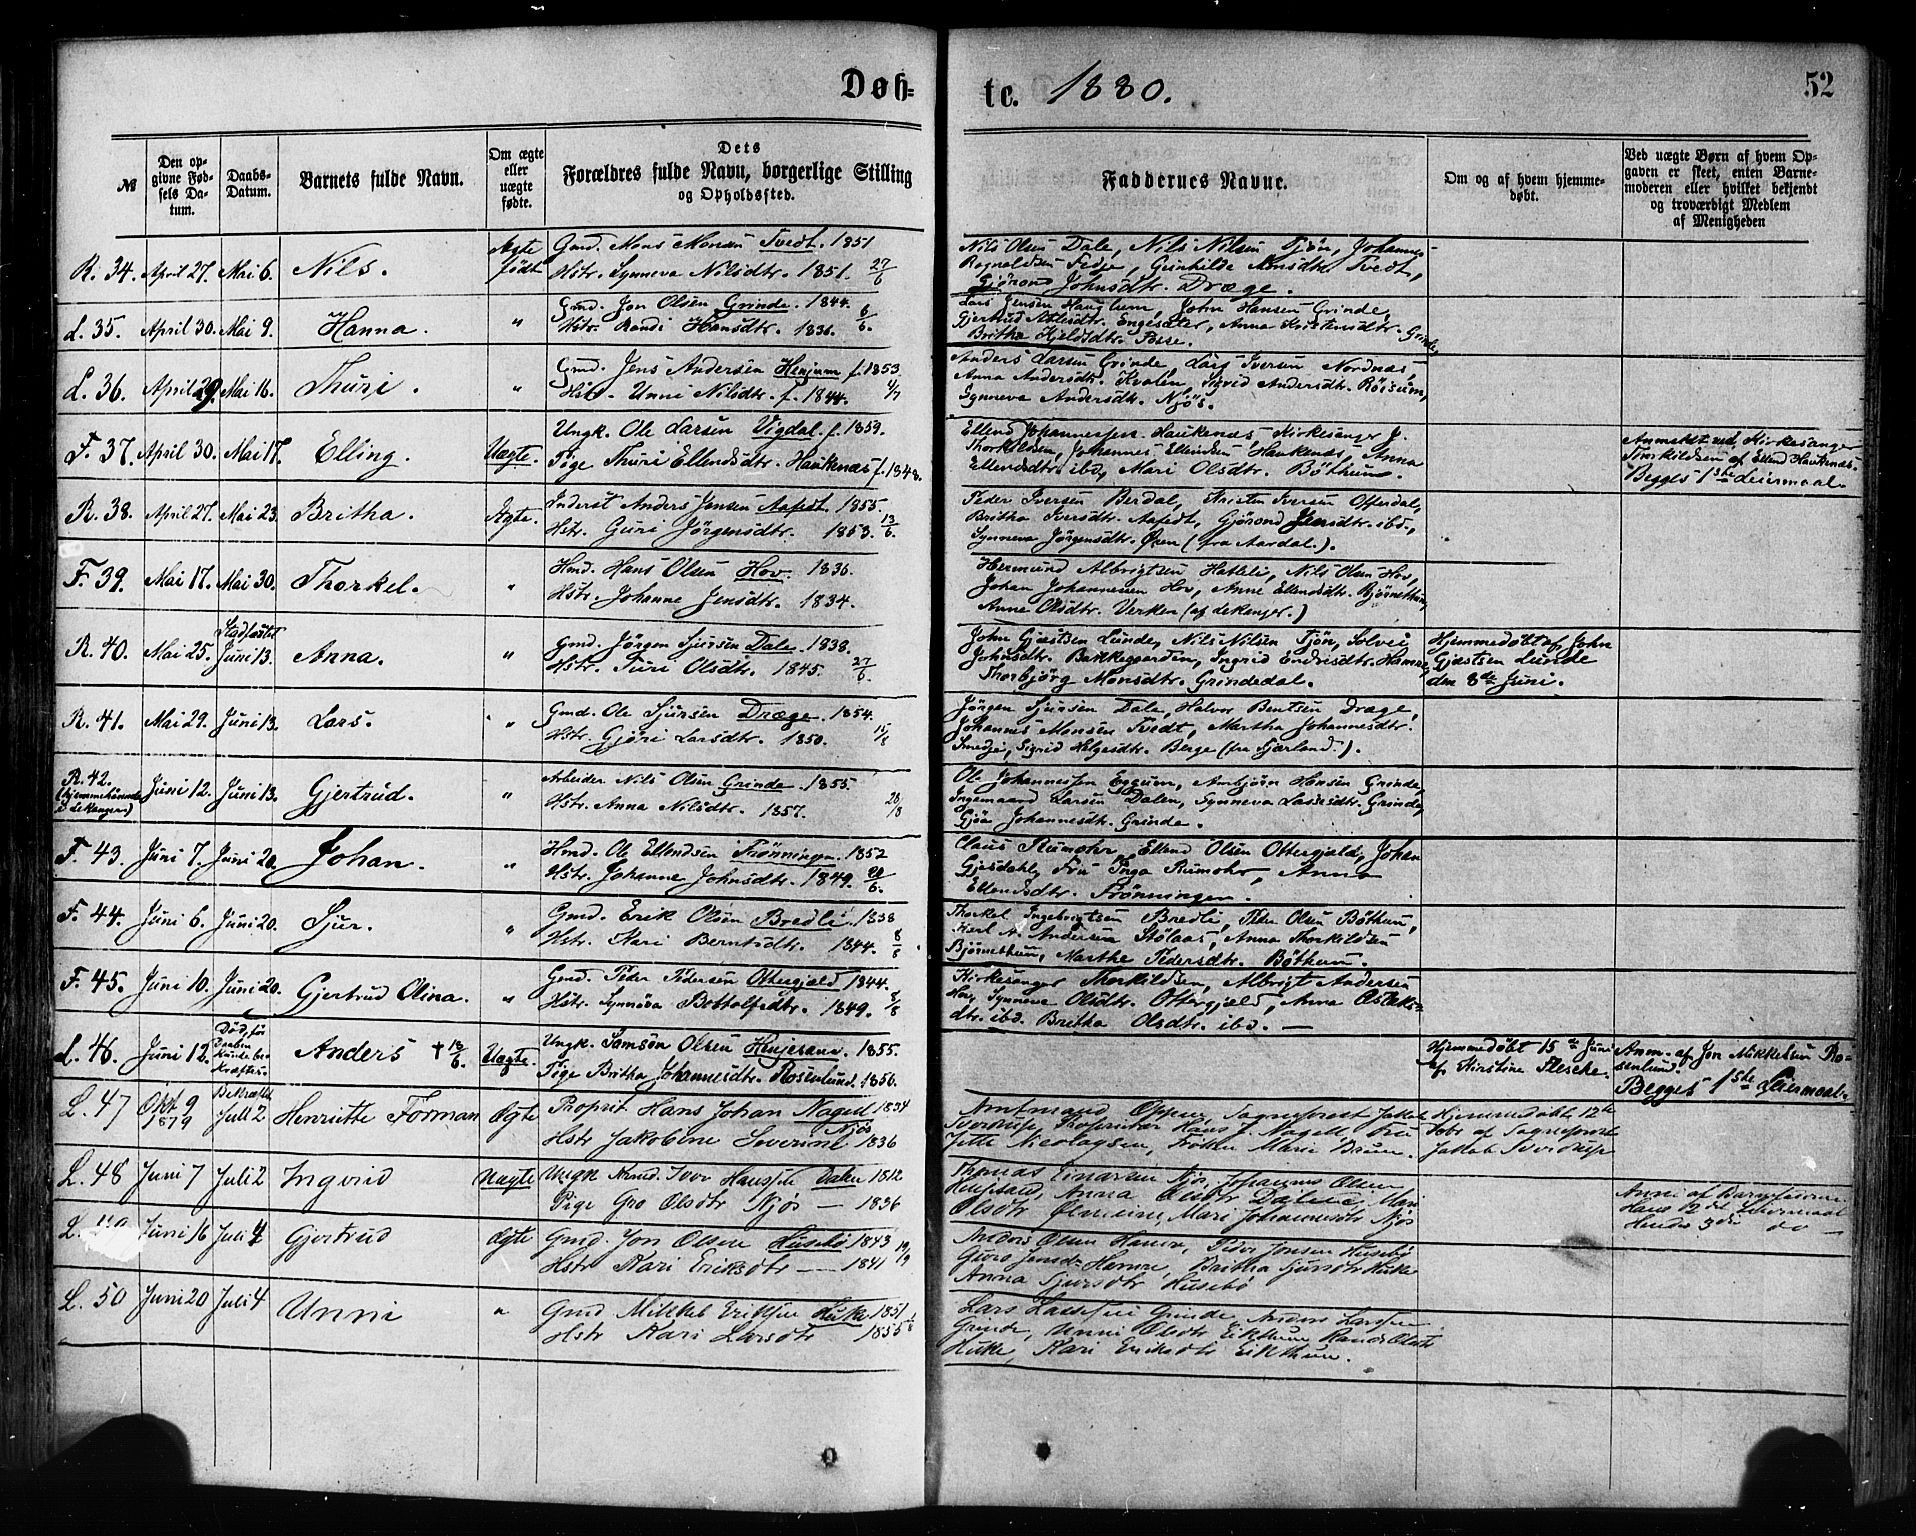 Døb-
te. 1880.
52
№
Den op-
givne Fød-
sels Da-
tum.
Daabs-
Datum.
Barnets fulde Navn.
Om ægte
eller
uægte
fødte.
Dets
Forældres fulde Navn, borgerlige Stilling
og Opholdssted.
Faddernes Navne.
Om og af hvem hjemme-
døbt.
Ved uægte Børn af hvem Op-
gaven er skeet, enten Barne-
moderen eller hvilket bekjendt
og troværdigt Medlem
af Menigheden
R. 34. April 27. Mai 6. Nils. Ægte født
Gmd. Mons Monsen Tvedt. 1851
Hstr. Synneva Nilsdtr. 1851. 27/6
Nils Olsen Dale, Nils Nilsen Tjøn, Johannes
Ragnaldsen Fedje, Gunhilde Monsdtr. Tvedt,
Gjørond Johnsdtr. Drægе.
L. 35. April 30. Mai 9. Hanna. "
Gmd. Jon Olsen Grinde. 1844.
Hstr. Randi Hansdtr. 1836. 6/6.
Lars Jensen Haughem, John Hansen Grinde,
Gjertrud Axelsdtr. Engesæter, Anna Kristensdtr. Grinde,
Britha Kjeldsdtr. Fosse.
L. 36. April 29. Mai 16. Thuri. "
Gmd. Jens Andersen Henjum f. 1853
Hstr. Unni Nilsdtr. f. 1844. 4/7
Anders Larsen Grinde, Lars Iversen Nordnæs,
Anna Andersdtr. Kvalen, Sigrid Andersdtr. Røisum,
Synneva Andersdtr. Njøs.
F. 37. April 30. Mai 17. Elling. Uægte.
Ungk. Ole Larsen Vigdal. f. 1859.
Pige Thuri Ellendsdtr. Haukenæs f. 1848.
Ellend Johannessen Haukenæs, Kirkesanger J.
Thorkildsen, Johannes Ellendsen Haukenæs, Anna
Ellendsdtr. ibd, Mari Olsdtr. Bøthun.
Anmeldt ved Kirkesanger
Thorkildsen af Ellend Haukenæs.
Begges 1ste Leiermaal.
R. 38. April 27. Mai 23. Britha. Ægte.
Inderst Anders Jensen Aafedt. 1855.
Hstr. Guri Jørgensdtr. 1853. 13/6
Peder Iversen Berdal, Kristen Iversen Offerdal,
Britha Iversdtr. Aafedt, Gjørond Jensdtr. ibd.,
Synneva Jørgensdtr. Øren (fra Aardal.).
F. 39. Mai 17. Mai 30. Thorkel. "
Hmd. Hans Olsen Hov. 1836.
Hstr. Johanne Jensdtr. 1834.
Hermund Albrigtsen Hatleli, Nils Olsen Hov,
Johan Johannessen Hov, Anne Ellendsdtr. Bjørnethun,
Anne Olsdtr. Verken (af Lekanger.)
R. 40. Mai 25. Stadfæstet Juni 13. Anna. "
Gmd. Jørgen Sjursen Dale. 1838.
Hstr. Turi Olsdtr. 1845. 27/6
John Gjæstsen Lunde, Nils Nilsen Tjøn, Solvei
Johnsdtr. Bakkegaarden, Ingrid Endresdtr. Hamre,
Thorbjørg Monsdtr. Grindedal.
Hjemmedøbt af John
Gjæstsen Lunde
den 8de Juni.
R. 41. Mai 29. Juni 13. Lars. "
Gmd. Ole Sjursen Dræge. 1854.
Hstr. Gjøri Larsdtr. 1850. 15/8
Jørgen Sjursen Dale, Halvor Bentsen Dræge,
Johannes Monsen Tvedt, Martha Johannesdtr.
Smedje, Sigrid Helgesdtr. Berge (fra Fjærland.).
R. 42. (hjemmehørende i Lekanger) Juni 12. Juni 13. Gjertrud. "
Arbeider Nils Olsen Grinde. 1855.
Hstr. Anna Nilsdtr. 1857. 28/8
Ole Johannessen Eggum, Ambjørn Hansen Grinde,
Ingemaand Larsen Dalen, Synneva Lassesdtr. Grinde,
Gjøa Johannesdtr. Grinde.
F. 43. Juni 7. Juni 20. Johan. "
Hmd. Ole Ellendsen Frønningen. 1852
Hstr. Johanne Johnsdtr. 1849. 20/6.
Claus Rumohr, Ellend Olsen Ottergjeld, Johan
Gjesdahl, Fru Inga Rumohr, Anna
Ellendsdtr. Frønningen.
F. 44. Juni 6. Juni 20. Sjur. "
Gmd. Erik Olsen Bredli 1838
Hstr. Kari Berntsdtr. 1844. 8/8
Thorkel Ingebrigtsen Bredli, Peder Olsen Bøthun,
Karl A. Andersen Stølaas, Anna Thorkildsen
Bjørnethun, Marthe Pedersdtr. Bøthun.
F. 45. Juni 10. Juni 20. Gjertrud Olina. "
Gmd. Peder Pedersen Ottergjeld 1844.
Hstr. Synnøva Bottolfsdtr. 1849. 8/8
Kirkesanger Thorkildsen, Albrigt Andersen
Hov, Synneva Olsdtr. Ottergjeld, Anna Oslaks-
dtr. ibd. Britha Olsdtr. ibd. —
L. 46. Juni 12. Død, før Daaben kunde be-kræftes. Anders † 18/6. Uægte.
Ungk. Samson Olsen Henjesand. 1855.
Pige Britha Johannesdtr. Rosenlund. 1856.
Hjemmedøbt 15de Juni
af Kirstine Flesche.
Anm. af Jon Mikkelsen Ro-
senlund.
Begges 1ste Leiermaal.
L. 47 Okt 9 1879 Bekræftet Juli 2 Henriette Forman Ægte
Proprit. Hans Johan Nagell 1834
Njøs
Hstr Jakobine Severine 1836
Amtmand Oppen, Sogneprest Jakob
Sverdrup, Proprietær Hans J. Nagell, Fru
Jette Nicolaysen, Frøken Marie Daum.
Hjemmedøbt 12te
af Sogneprest
Jakob Sverdrup
L. 48 Juni 7 Juli 2 Ingvid Uægte
Ungk Ivar Hanssen Dalen 1812
Pige Gro Olsdtr Njøs — 1836
Thomas Einarsen Njøs, Johannes Olsen
Anna Olsdtr
Olsdtr Mari Johannesdtr Njøs
Anm af Barnefaderen
Hans 2det Leiermaal
Hendes 3die do —
L. Juni 16 Juli 4 Gjertrud Ægte
Gmd. Jon Olsen Husebø 1843 19/9
Hstr Kari Eriksdtr — 1841
Anders Olsen Hamre, Peder Jonsen Husebø
Guro Jensdtr Hamre, Britha Sjursdtr Huke
Anna Sjursdtr Husebø
L. 50 Juni 20 Juli 4 Unni "
Gmd Mikkel Eriksen Huke 1851
Hstr Kari Larsdtr 1855
Lars Lassesen Grinde Anders Larssen
Grinde, Unni Olsdtr Eikthun Randi Olsdtr
Huke, Kari Eriksdtr Eikthun.